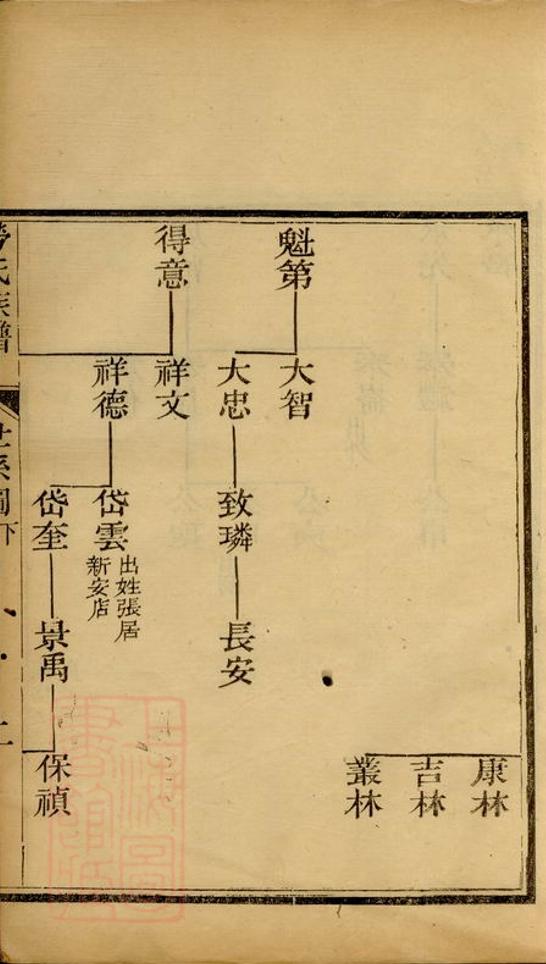 康林
吉林
叢林
魁第
大智
大忠
致璘
長安
得意
祥文
祥德
岱雲
出姓張居
新安店
岱奎
景禹
保禎
氏族譜
世系圖下